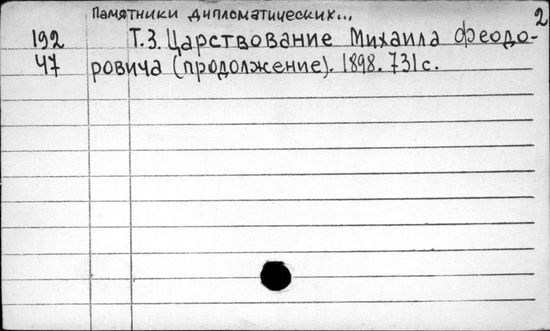 Памятники дипломатических... 2
192 Т.3. Царствование Михаила Феодо-
47 ровича (продолжение). 1898. 731 с.